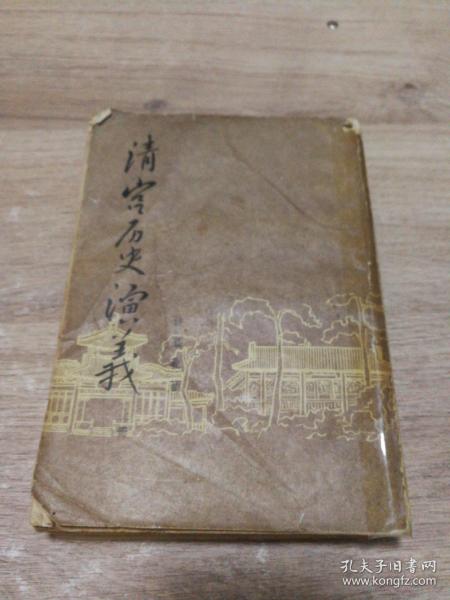 清宫历史演義
孔夫子旧书网
www.kongfz.com